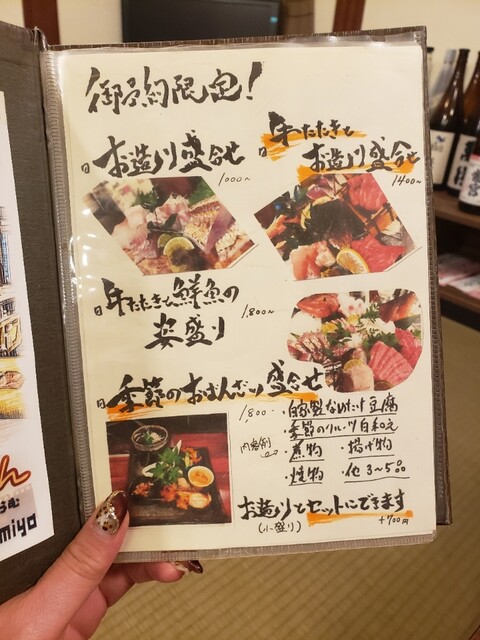 御予約限定!
お造り盛合せ
1000~
牛たたきと
お造り盛合せ
1400~
牛たたきと鮮魚の
姿盛り
1,800~
季節のおばんざい盛合せ
1,800~
・自家製なめたけ豆腐
・季節のフルーツ白和え
内容例
・煮物
・揚げ物
・焼物
・他3~5品
お造りとセットにできます
(小盛り)
+700円
miya